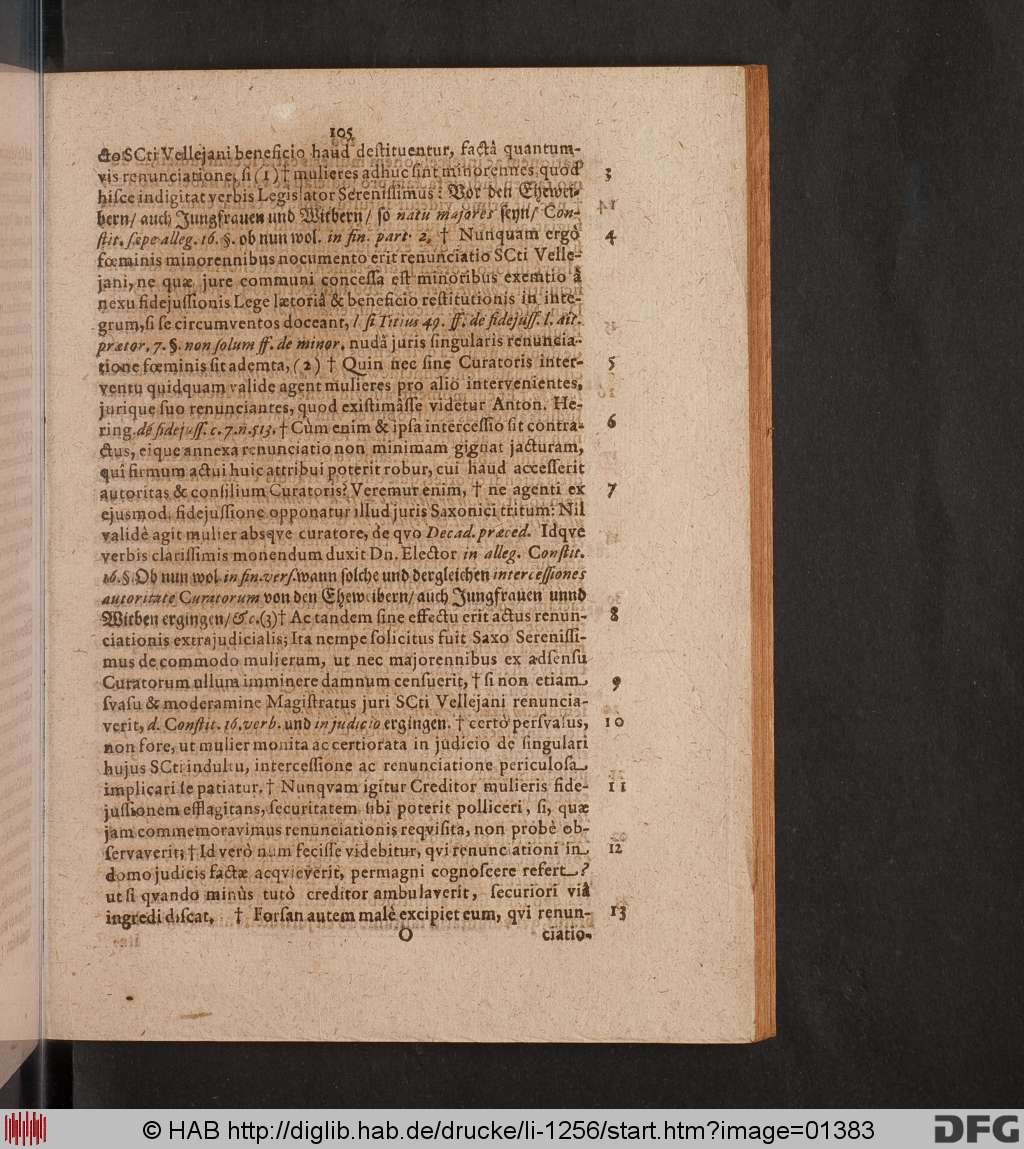 105
cto SCti Vellejani beneficio haud destituentur, factâ quantum-
vis renunciatione, si (1) † mulieres adhuc sint minorennes quod 3
hisce indigitat verbis Legislator Serenissimus: Vor den Ehewei-
bern/ auch Jungfrauen und Witbern/ so natu majores seyn/ Con-
stit. sæpe alleg. 16. §. ob nun wol. in fin. part. 2. † Nunquam ergò 4
fœminis minorennibus nocumento erit renunciatio SCti Velle-
jani, ne quæ jure communi concessa est minoribus exemtio â
nexu fidejussionis Lege lætoriâ & beneficio restitutionis in inte-
grum, si se circumventos doceant, l. si Titius 49. ff. de fidejuss. l. ait.
prætor, 7. §. non solum ff. de minor. nudâ juris singularis renuncia-
tione fœminis sit ademta, (2) † Quin nec sine Curatoris inter- 5
ventu quidquam valide agent mulieres pro alio intervenientes,
jurique suo renunciantes, quod existimâsse videtur Anton. He-
ring. de fidejuss. c. 7. n. 513. † Cùm enim & ipsa intercessio sit contra- 6
ctus, eique annexa renunciatio non minimam gignat jacturam,
quî firmum actui huic attribui poterit robur, cui haud accesserit
autoritas & consilium Curatoris? Veremur enim, † ne agenti ex 7
ejusmod. fidejussione opponatur illud juris Saxonici tritum: Nil
validè agit mulier absqve curatore, de qvo Decad. præced. Idqve
verbis clarissimis monendum duxit Dn. Elector in alleg. Constit.
16. §. Ob nun wol in fin. vers. wann solche und dergleichen intercessiones
autoritate Curatorum von den Eheweibern/ auch Jungfrauen unnd
Witben ergingen/ &c. (3) † Ac tandem sine effectu erit actus renun- 8
ciationis extrajudicialis; Ita nempe solicitus fuit Saxo Serenissi-
mus de commodo mulierum, ut nec majorennibus ex adsensu
Curatorum ullum imminere damnum censuerit, † si non etiam 9
svasu & moderamine Magistratus juri SCti Vellejani renuncia-
verit, d. Constit. 16. verb. und in judicio ergingen. † certò persvasus, 10
non fore, ut mulier monita ac certiorata in judicio de singulari
hujus SCti indultu, intercessione ac renunciatione periculosa
implicari se patiatur. † Nunqvam igitur Creditor mulieris fide- 11
jussionem efflagitans, securitatem sibi poterit polliceri, si, quæ
jam commemoravimus renunciationis reqvisita, non probè ob-
servaverit; † Id verò num fecisse videbitur, qvi renunciationi in 12
domo judicis factæ acqvieverit, permagni cognoscere refert?
ut si qvando minùs tutò creditor ambulaverit, securiori viâ
ingredi discat, † Forsan autem malè excipiet eum, qvi renun- 13
O ciatio-
© HAB http://diglib.hab.de/drucke/li-1256/start.htm?image=01383
DFG